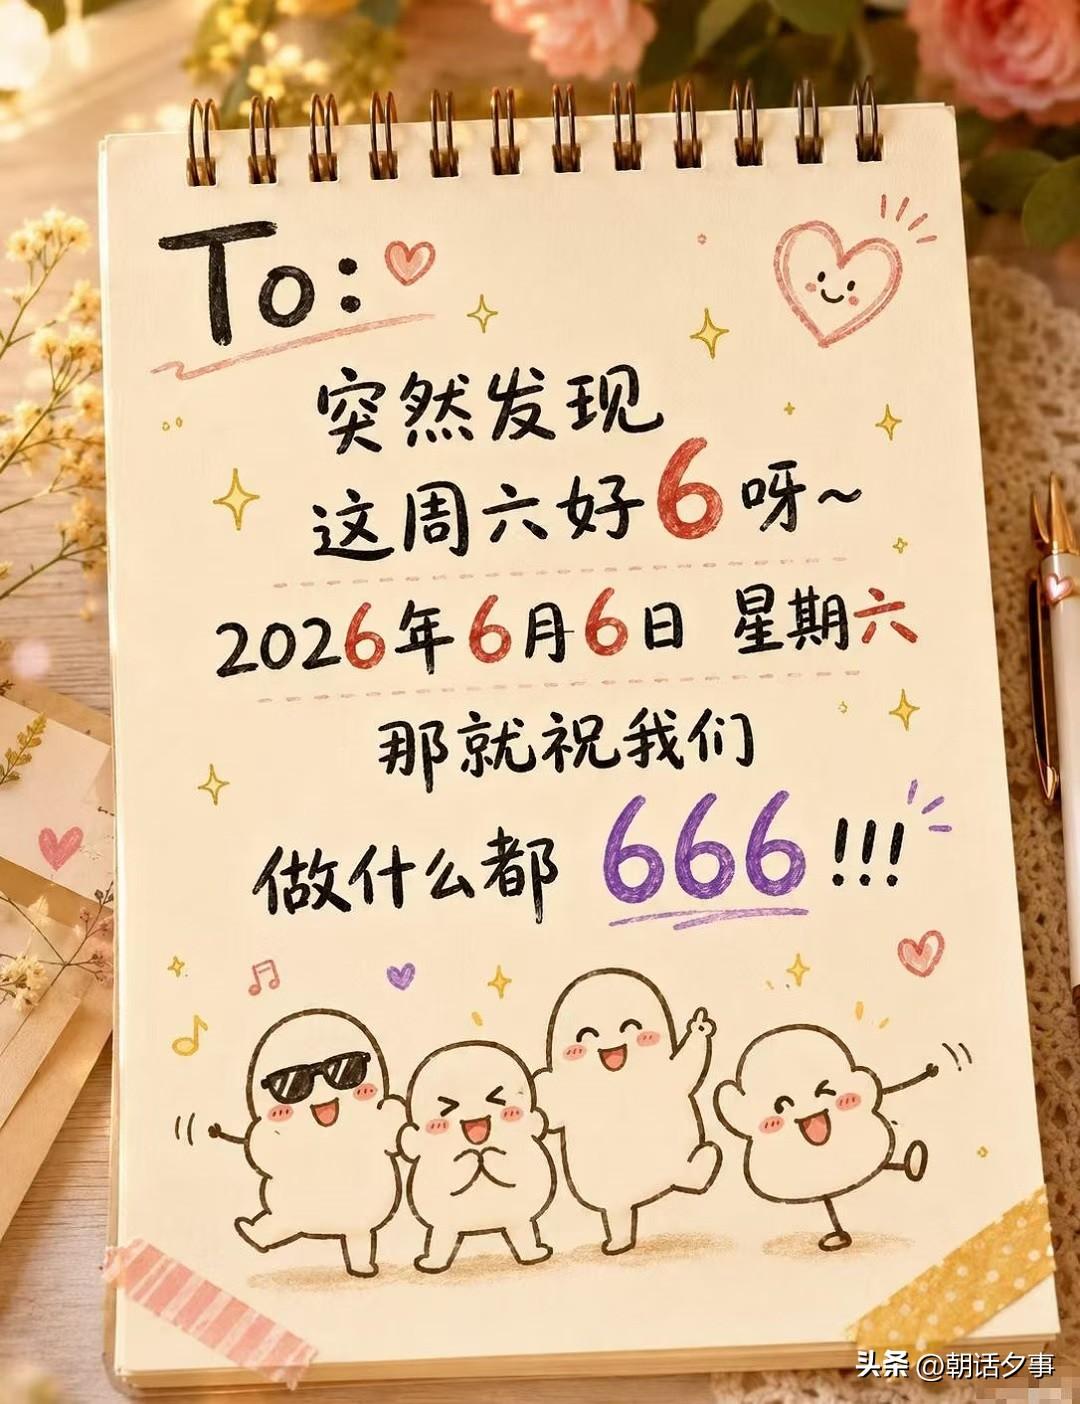 To:
突然发现
这周六好6呀~
2026年6月6日 星期六
那就祝我们
做什么都 666 !!!
头条 @朝话夕事